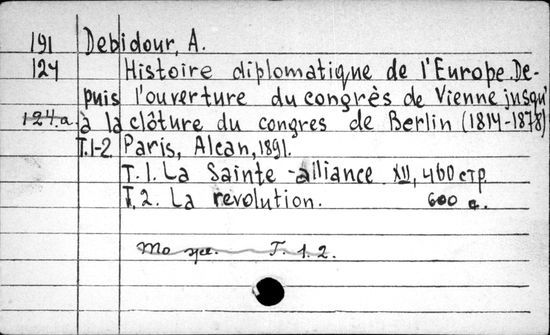 191 Debidour, A.
124 Histoire diplomatique de l'Europe. De-
puis l'ouverture du congrès de Vienne jusqu'
124.a. à la clôture du congres de Berlin (1814-1878)
T.1-2. Paris, Alcan, 1891.
T.1. La Sainte-alliance XII, 460 стр
T.2. La revolution. 600 с.
То же. Т. 1.2.